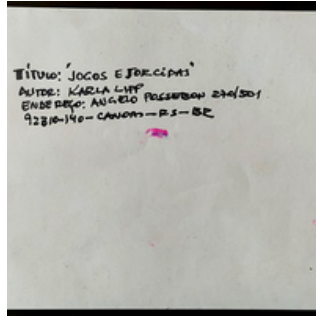 TÍTULO: 'JOGOS E TORCIDAS'
AUTOR: KARLA LIPP
ENDEREÇO: ANGELO POSSEBON 270/501
92310-140-CANOAS-RS-BR